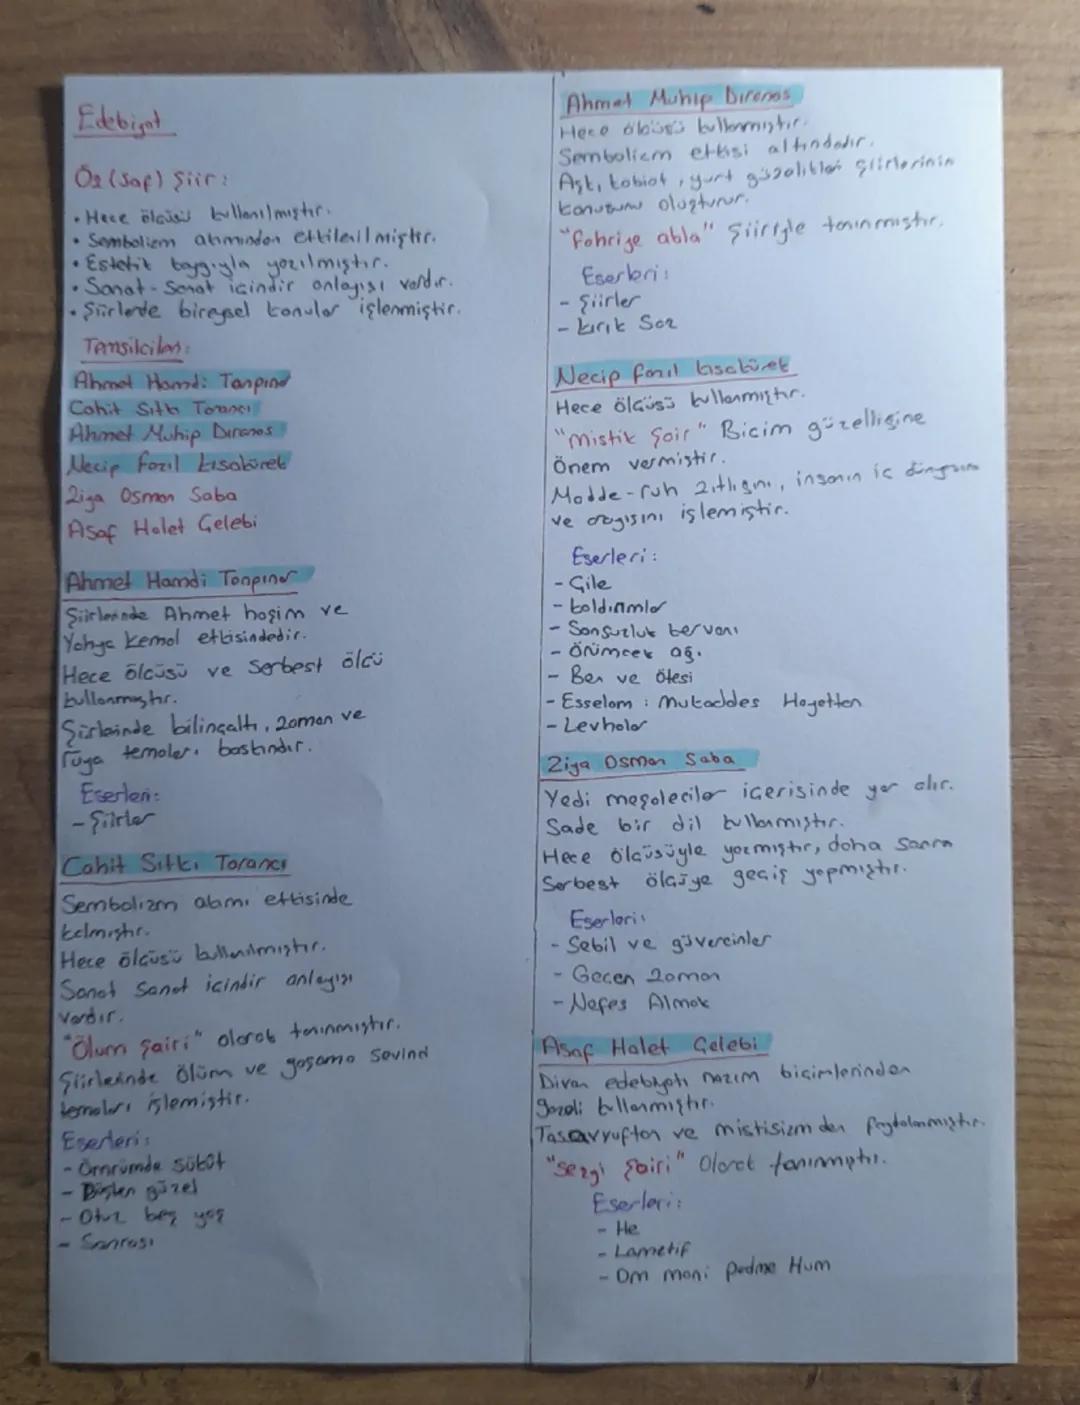 Edebiyat
Öz (Saf) Şiir:
• Hece ölçüsü kullanılmıştır.
• Sembolizm akımından etkilenilmiştir.
• Estetik kaygıyla yazılmıştır.
• Sanat-Sanat içindir anlayışı vardır.
• Şiirlerde bireysel konular işlenmiştir.
Temsilcileri:
Ahmet Hamdi Tanpınar
Cahit Sıtkı Tarancı
Ahmet Muhip Dıranas
Necip Fazıl Kısakürek
Ziya Osman Saba
Asaf Halet Çelebi
Ahmet Hamdi Tanpınar
Şiirlerinde Ahmet haşim ve
Yahya Kemal etkisindedir.
Hece ölçüsü ve Serbest ölçü
kullanmıştır.
Şiirlerinde bilinçaltı, zaman ve
rüya temaları baskındır.
Eserleri:
- Şiirler
Cahit Sıtkı Tarancı
Sembolizm akımı etkisinde
kalmıştır.
Hece ölçüsü kullanılmıştır.
Sanat Sanat içindir anlayışı
vardır.
"Ölüm şairi" olarak tanınmıştır.
Şiirlerinde ölüm ve yaşama sevinci
temaları işlemiştir.
Eserleri:
- Ömrümde sükût
- Düşten güzel
- Otuz beş yaş
- Sonrası
Ahmet Muhip Dıranas
Hece ölçüsü kullanmıştır.
Sembolizm etkisi altındadır.
Aşk, tabiat, yurt güzellikleri şiirlerinin
konusunu oluşturur.
"fahriye abla" şiiriyle tanınmıştır.
Eserleri:
- Şiirler
- Kırık Saz
Necip fazıl kısakürek
Hece ölçüsü kullanmıştır.
"Mistik Şair" Biçim güzelliğine
Önem vermiştir.
Madde-ruh zıtlığını, insanın iç dünyasını
ve arayışını işlemiştir.
Eserleri:
- Çile
- kaldırımlar
- Sonsuzluk kervanı
- Örümcek ağı
- Ben ve Ötesi
- Esselam : Mukaddes Hayattan
- Levhalar
Ziya Osman Saba
Yedi meşaleciler içerisinde yer alır.
Sade bir dil kullanmıştır.
Hece ölçüsüyle yazmıştır, daha sonra
Serbest ölçüye geçiş yapmıştır.
Eserleri:
- Sebil ve güvercinler
- Geçen zaman
- Nefes Almak
Asaf Halet Çelebi
Divan edebiyatı nazım biçimlerinden
gazeli kullanmıştır.
Tasavvuftan ve mistisizmden faydalanmıştır.
"Sezgi Şairi" Olarak tanınmıştır.
Eserleri:
- He
- Lamelif
- Om mani padme Hum